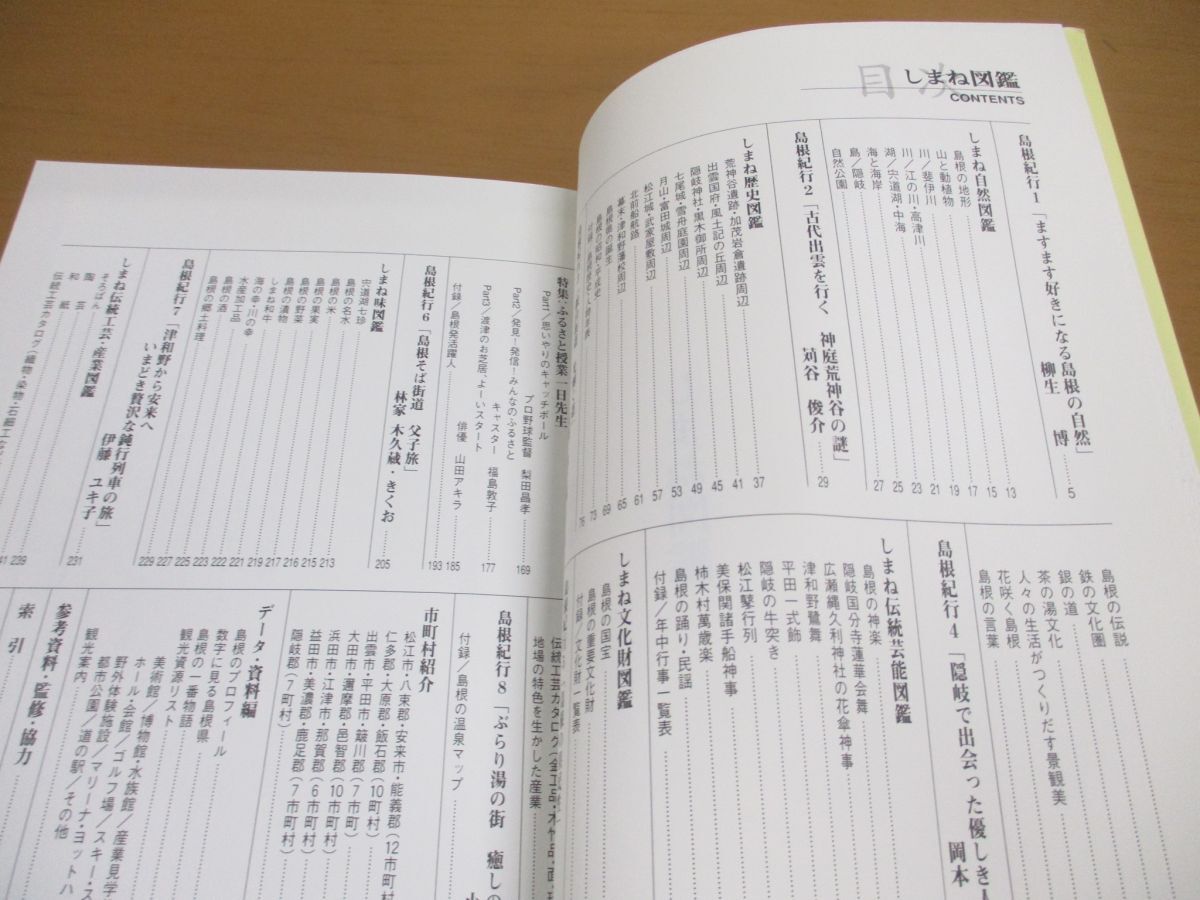 目次
しまね図鑑
CONTENTS
島根紀行1「ますます好きになる島根の自然」
柳生 博 5
しまね自然図鑑
島根の地形 13
山と動植物 15
川/斐伊川 17
川/江の川・高津川 19
湖/宍道湖・中海 21
海と海岸 23
島/隠岐 25
自然公園 27
島根紀行2「古代出雲を行く 神庭荒神谷の謎」
苅谷 俊介 29
しまね歴史図鑑
荒神谷遺跡・加茂岩倉遺跡周辺 37
出雲国府・風土記の丘周辺 41
隠岐神社・黒木御所周辺 45
七尾城・雪舟庭園周辺 49
月山・富田城周辺 53
松江城・武家屋敷周辺 57
北前船航路 61
幕末・津和野藩校周辺 65
島根県の誕生 69
島根の昭和・平成史 73
76
島根の伝説
鉄の文化圏
銀の道
茶の湯文化
人々の生活がつくりだす景観美
花咲く島根
島根の言葉
島根紀行4「隠岐で出会った優しき人
岡本
しまね伝統芸能図鑑
島根の神楽
隠岐国分寺蓮華会舞
広瀬縄久利神社の花傘神事
津和野鷺舞
平田一式飾
隠岐の牛突き
松江鼕行列
美保関諸手船神事
柿木村萬歳楽
島根の踊り・民謡
付録/年中行事一覧表
しまね文化財図鑑
島根の国宝
島根の重要文化財
付録/文化財一覧表
特集・ふるさと授業一日先生
Part1/思いやりのキャッチボール
プロ野球監督 梨田昌孝 169
Part2/発見!発信!みんなのふるさと
キャスター 福島敦子 177
Part3/渡津のお芝居、よーいスタート
俳優 山田アキラ 185
付録/島根発活躍人 193
島根紀行6「島根そば街道 父子旅」
林家 木久蔵・きくお 205
しまね味図鑑
宍道湖七珍 213
島根の名水 215
島根の米 216
島根の果実 217
島根の野菜 219
島根の漬物 221
しまね和牛 222
海の幸・川の幸 223
水産加工品 225
島根の酒 227
島根の郷土料理 229
島根紀行7「津和野から安来へ
いまどき贅沢な鈍行列車の旅」
伊藤 ユキ子 231
しまね伝統工芸・産業図鑑
そろばん 239
陶芸 41
和紙
伝統工芸カタログ(織物・染物・石細工
地場の特色を生かした産業
島根紀行8「ぶらり湯の街 癒しの
付録/島根の温泉マップ
市町村紹介
松江市・八束郡・安来市・能義郡(12市町村)
仁多郡・大原郡・飯石郡(10町村)
出雲市・平田市・簸川郡(7市町)
大田市・邇摩郡・邑智郡(10市町村)
浜田市・江津市・那賀郡(6市町)
益田市・美濃郡・鹿足郡(7市町村)
隠岐郡(7町村)
データ・資料編
島根のプロフィール
数字に見る島根県
島根の一番物語
観光資源リスト
美術館/博物館・水族館/産業見学
ホール・会館/ゴルフ場/スキー・ス
野外体験施設/マリーナ・ヨットハ
都市公園/道の駅/その他
観光案内
参考資料・監修・協力
索引